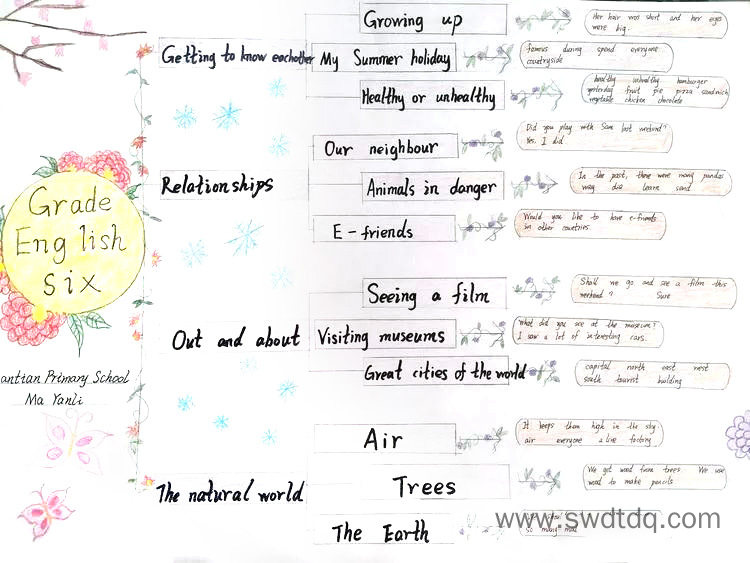 Grade
English
six
antian Primary School
Ma Yanli
Getting to know eachother
Growing up
Her hair was short and her eyes
were big.
My Summer holiday
famous during spend everyone
countryside
Healthy or unhealthy
healthy unhealthy hamburger
yesterday fruit pie pizza sandwich
vegetable chicken chocolate
Relationships
Our neighbour
Did you play with Sam last weekend?
Yes, I did
Animals in danger
In the past, there were many pandas
way die learn send
E-friends
Would you like to have e-friends
in other countries
Out and about
Seeing a film
Shall we go and see a film this
weekend? Sure
Visiting museums
What did you see at the museum?
I saw a lot of interesting cars.
Great cities of the world
capital north east west
south tourist building
The natural world
Air
It keeps them high in the sky.
air everyone alive factory
Trees
We get wood from trees. We use
wood to make pencils
The Earth
so many
www.swdtdq.com